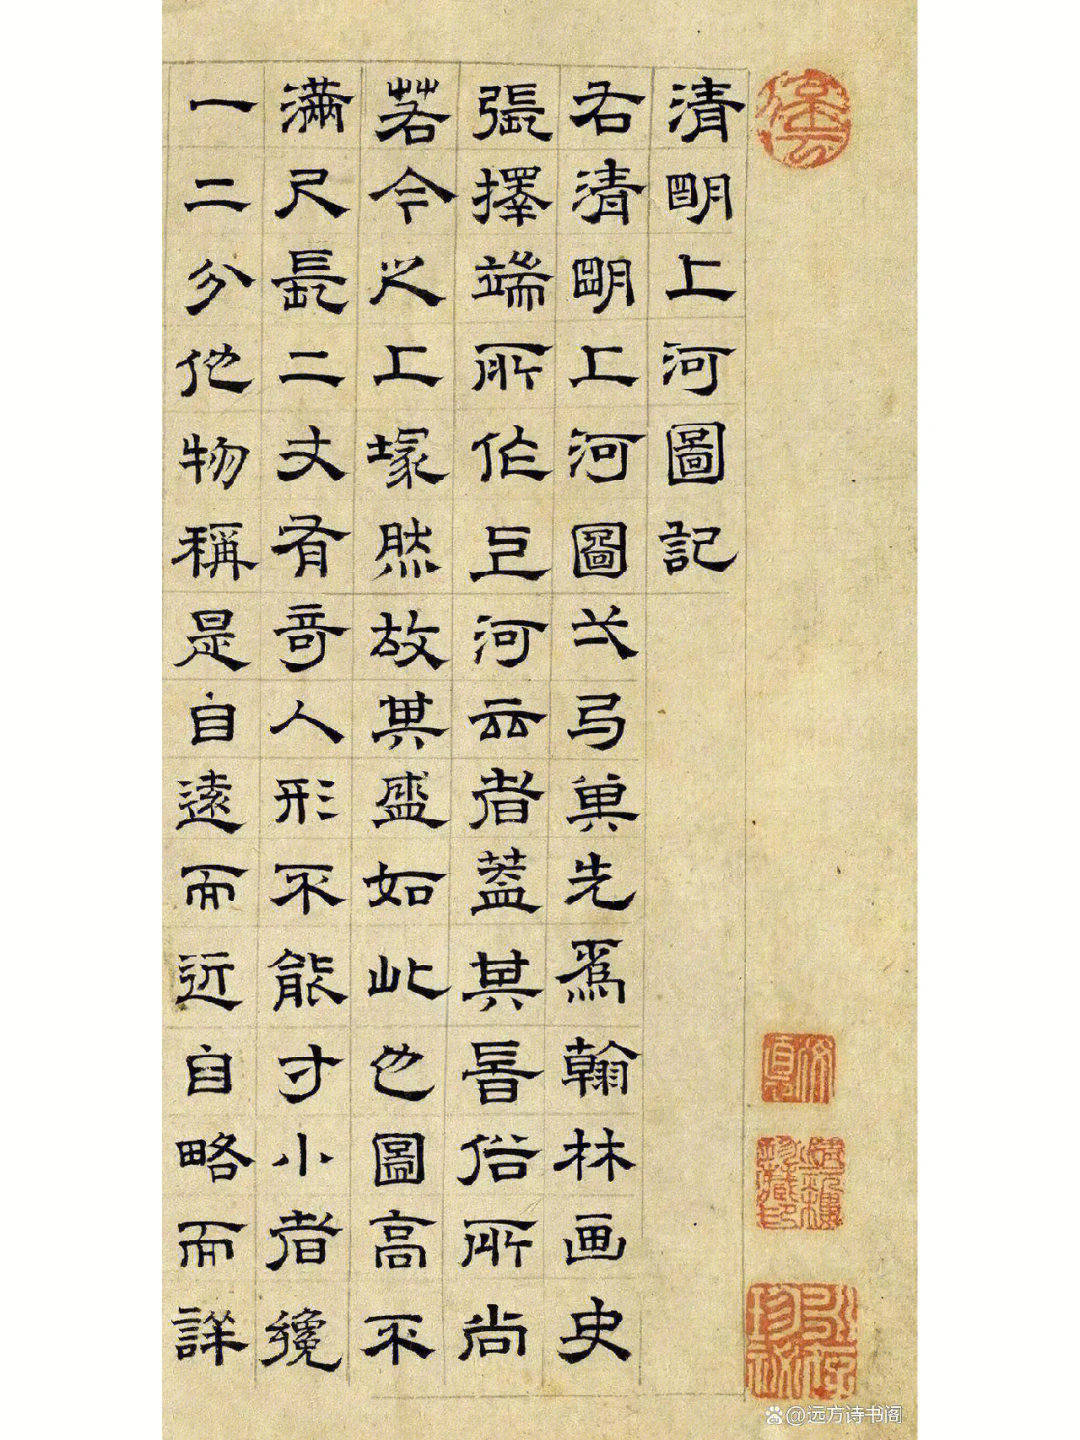 清明上河圖記
右清明上河圖弌弓先爲翰林画史
張擇端所作河云者蓋其旹俗所尚
若今之上塚然故其盛如此也圖高不
滿尺長二丈有奇人形不能寸小者纔
一二分他物稱是自遠而近自略而詳
@远方诗书阁